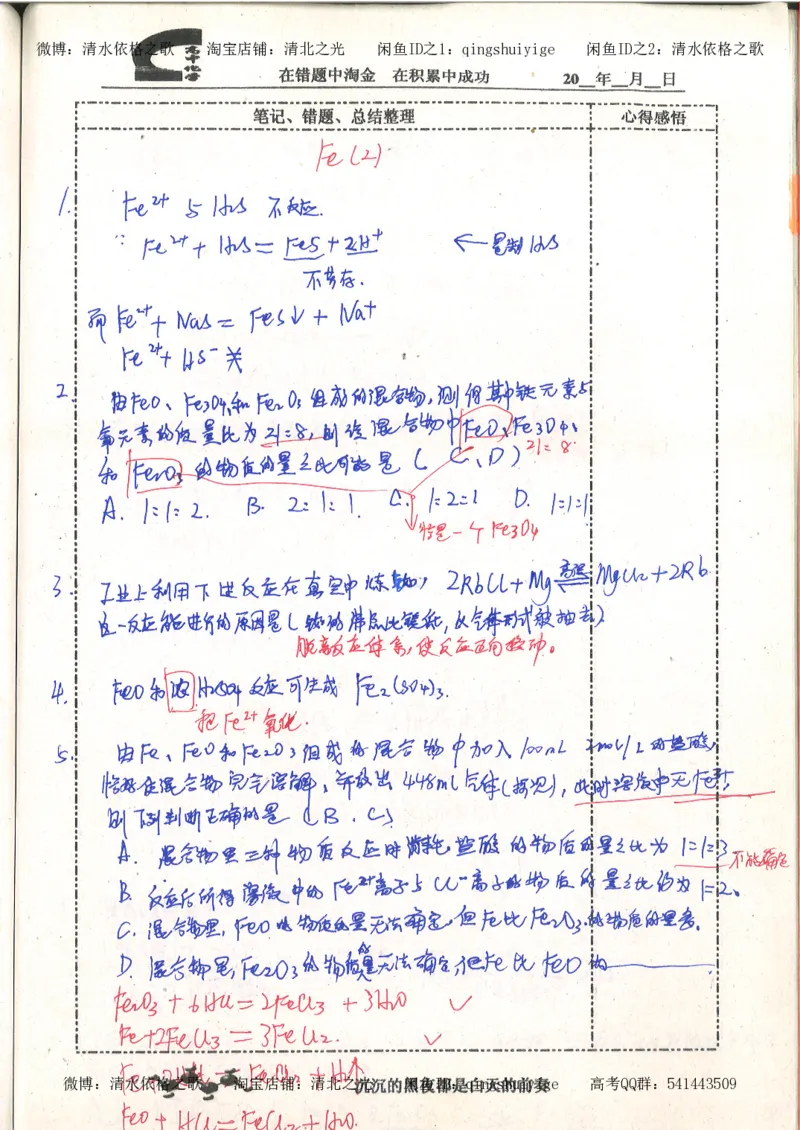 微博：清水依格之歌 淘宝店铺：清北之光 闲鱼ID之1：qingshuiyige 闲鱼ID之2：清水依格之歌
高中化学
在错题中淘金 在积累中成功 20__年__月__日
笔记、错题、总结整理 心得感悟
Fe(2)
1. Fe²⁺ 与 H₂S 不反应.
∵ Fe²⁺ + H₂S = FeS + 2H⁺ ← 制 H₂S
不共存.
而 Fe²⁺ + Na₂S = FeS↓ + Na⁺
Fe²⁺ + HS⁻ ×
2. 由FeO、Fe₃O₄和Fe₂O₃组成的混合物，测得其中铁元素与
氧元素的质量比为21=8，则该混合物中FeO、Fe₃O₄、
和Fe₂O₃的物质的量之比可能是 ( C、D ) 21=8
A. 1=1=2. B. 2=1=1. C. 1=2=1 D. 1=1=1
一个Fe₃O₄
3. 工业上利用下述反应在真空中炼铷， 2RbCl+Mg 高温 MgCl₂+2Rb.
这一反应能进行的原因是(铷的沸点比镁低，以气体形式被抽去)
脱离反应体系，使反应正向移动。
4. FeO和浓H₂SO₄反应可生成 Fe₂(SO₄)₃.
把Fe²⁺氧化.
5. 由Fe、FeO和Fe₂O₃组成的混合物中加入100mL 2mol/L的盐酸，
恰好使混合物完全溶解，并放出448mL气体(标况)，此时溶液中无Fe³⁺，
则下列判断正确的是 (B.C)
A. 混合物里三种物质反应时消耗盐酸的物质的量之比为 1=1=3 不能确定
B. 反应后所得溶液中的Fe²⁺离子与Cl⁻离子的物质的量之比为1=2.
C. 混合物里，FeO的物质的量无法确定，但Fe比Fe₂O₃的物质的量多.
D. 混合物里，Fe₂O₃的物质的量无法确定，但Fe比FeO的
Fe₂O₃ + 6HCl = 2FeCl₃ + 3H₂O ✓
Fe+2FeCl₃ = 3FeCl₂. ✓
微博：清水依格之歌 淘宝店铺：清北之光 沉沉的黑夜都是白天的前奏 qingshuiyige 高考QQ群：541443509
FeO + HCl = FeCl₂ + H₂O.